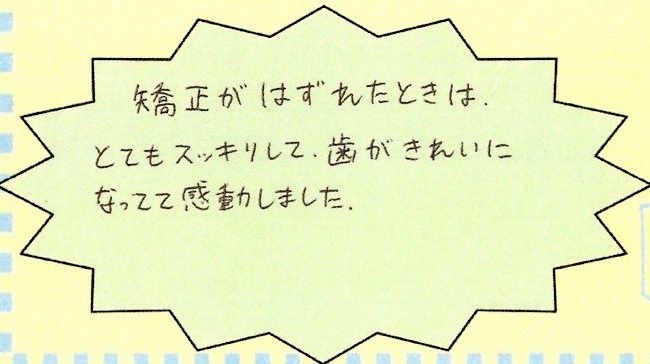 矯正がはずれたときは、
とてもスッキリして、歯がきれいに
なってて感動しました。